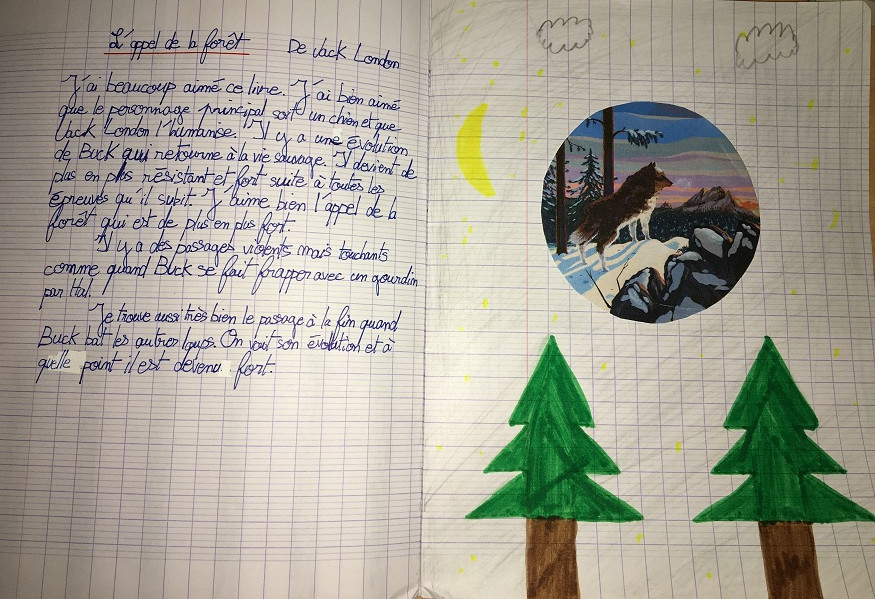 L'appel de la forêt De Jack London
J'ai beaucoup aimé ce livre. J'ai bien aimé
que le personnage principal soit un chien et que
Jack London l'humanise. Il y a une évolution
de Buck qui retourne à la vie sauvage. Il devient de
plus en plus résistant et fort suite à toutes les
épreuves qu'il subit. J'aime bien l'appel de la
forêt qui est de plus en plus fort.
Il y a des passages violents mais touchants
comme quand Buck se fait frapper avec un gourdin
par Hal.
Je trouve aussi très bien le passage à la fin quand
Buck bat les autres loups. On voit son évolution et à
quelle point il est devenu fort.